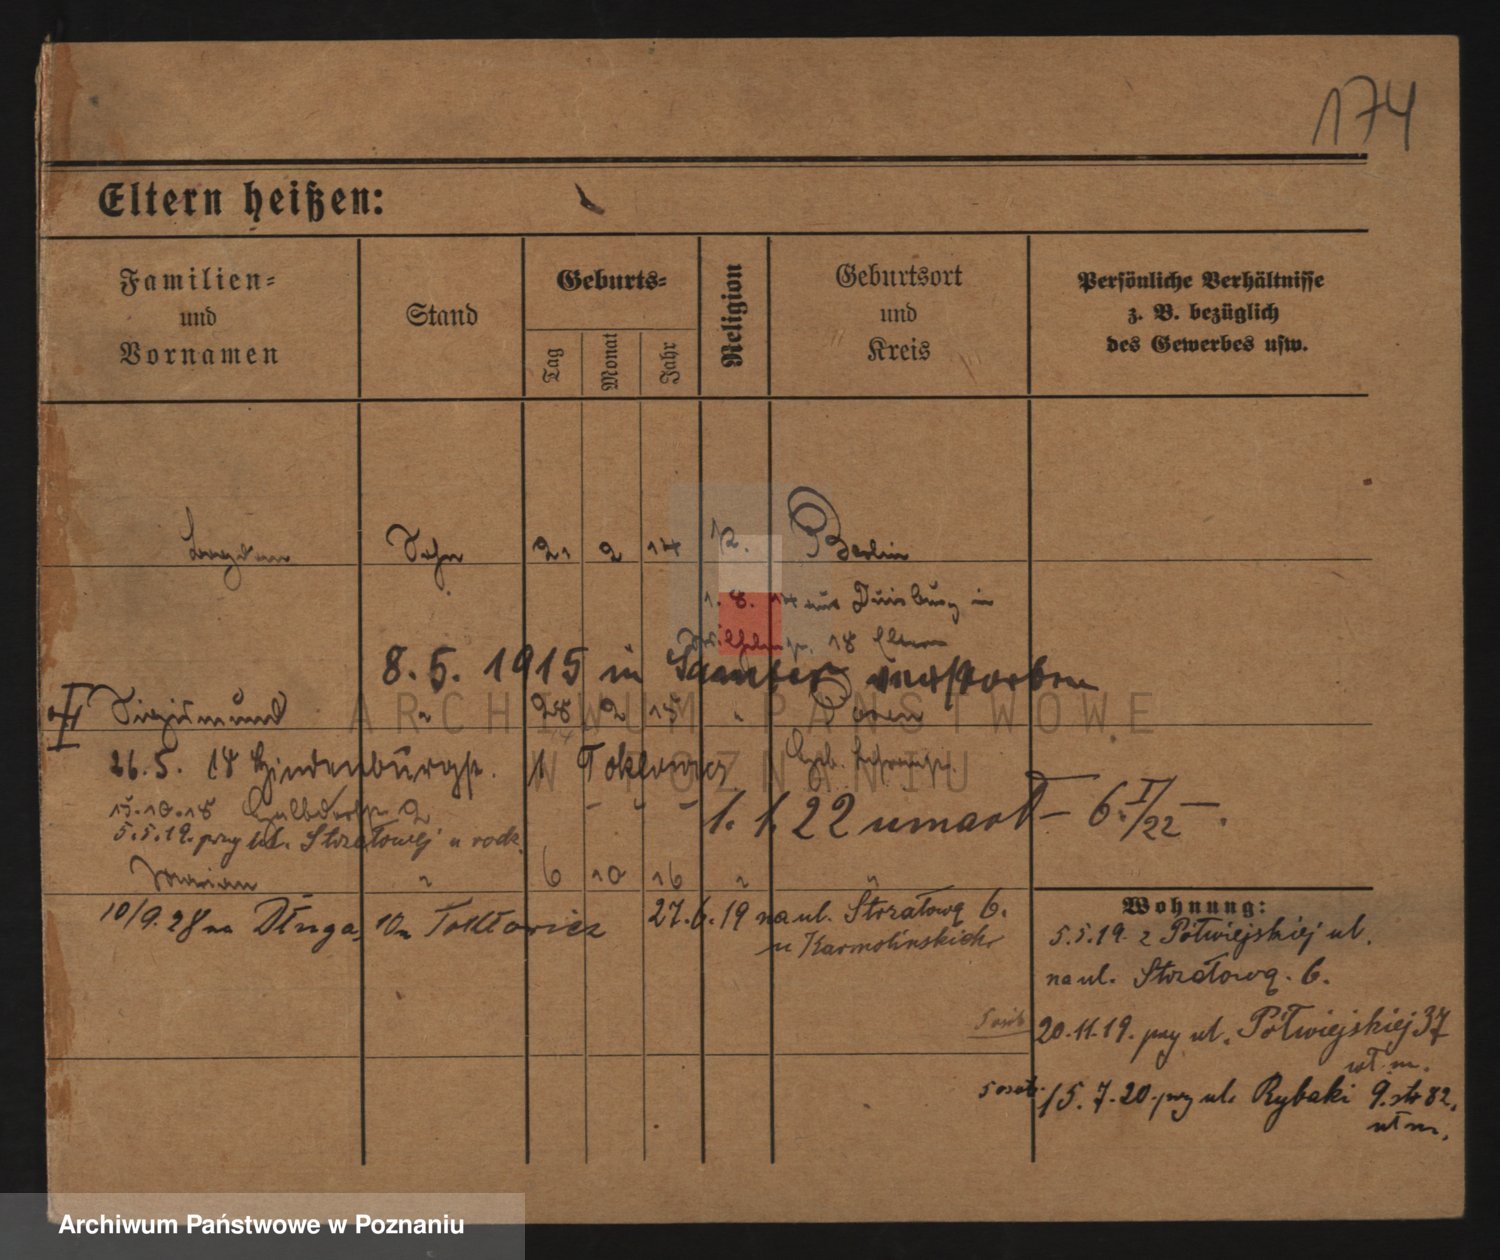 174
Eltern heißen:
Familien=
und
Vornamen
Stand
Geburts=
Tag
Monat
Jahr
Religion
Geburtsort
und
Kreis
Persönliche Verhältnisse
z. B. bezüglich
des Gewerbes usw.
Sohn 2 14 Berlin
1. 8. 14 aus Duisburg in
18 Eltern
8. 5. 1915 in Samter verstorben
Sigismund " 28 2 15 " Posen
26. 5. 18 Hindenburgstr.
15.10.18 2
1. 1. 22 umarł – 6.I/22 –.
5.5.19. przy ul. Strzałowej u rodz.
Marian " 6 10 16 " "
10/9.28 na Długa 10
27.6.19 na ul. Strzałową 6.
u Karmolinskich
Wohnung:
5.5.19 z Półwiejskiej ul.
na ul. Strzałową 6.
5 osób 20.11.19. przy ul. Półwiejskiej 37
wł. m.
5 osób 15.7.20 przy ul. Rybaki 9. str 82.
wł m.
ARCHIWUM PAŃSTWOWE
W POZNANIU
Archiwum Państwowe w Poznaniu